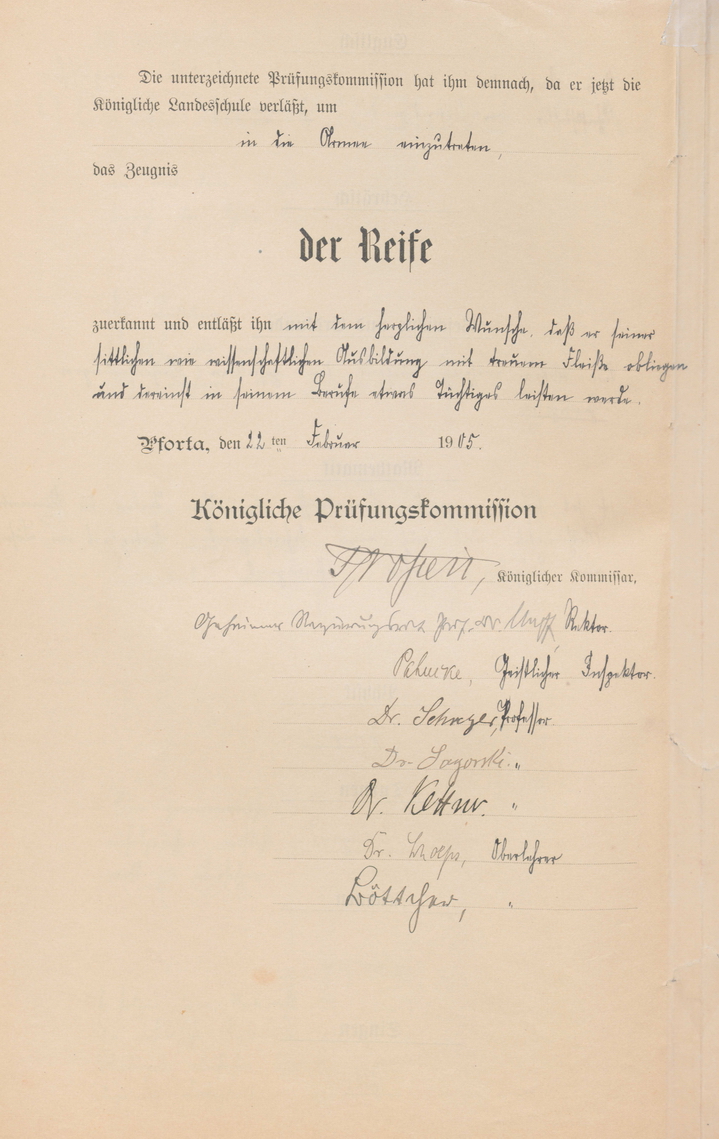 Die unterzeichnete Prüfungskommission hat ihm demnach, da er jetzt die
Königliche Landesschule verläßt, um
in die Armee einzutreten,
das Zeugnis
der Reife
zuerkannt und entläßt ihn mit dem herzlichen Wunsche, daß er seiner
sittlichen wie wissenschaftlichen Ausbildung mit treuem Fleiße obliegen
und dereinst in seinem Berufe etwas Tüchtiges leisten werde.
Pforta, den 22ten Februar 1905.
Königliche Prüfungskommission
Königlicher Kommissar.
Geheimer Regierungsrat Prof. Dr. Muff, Rektor.
Pahncke, Geistlicher Inspektor.
Dr. Professor
Dr. Sagorski "
Dr. Kettner. "
Dr. Oberlehrer
Böttcher, "